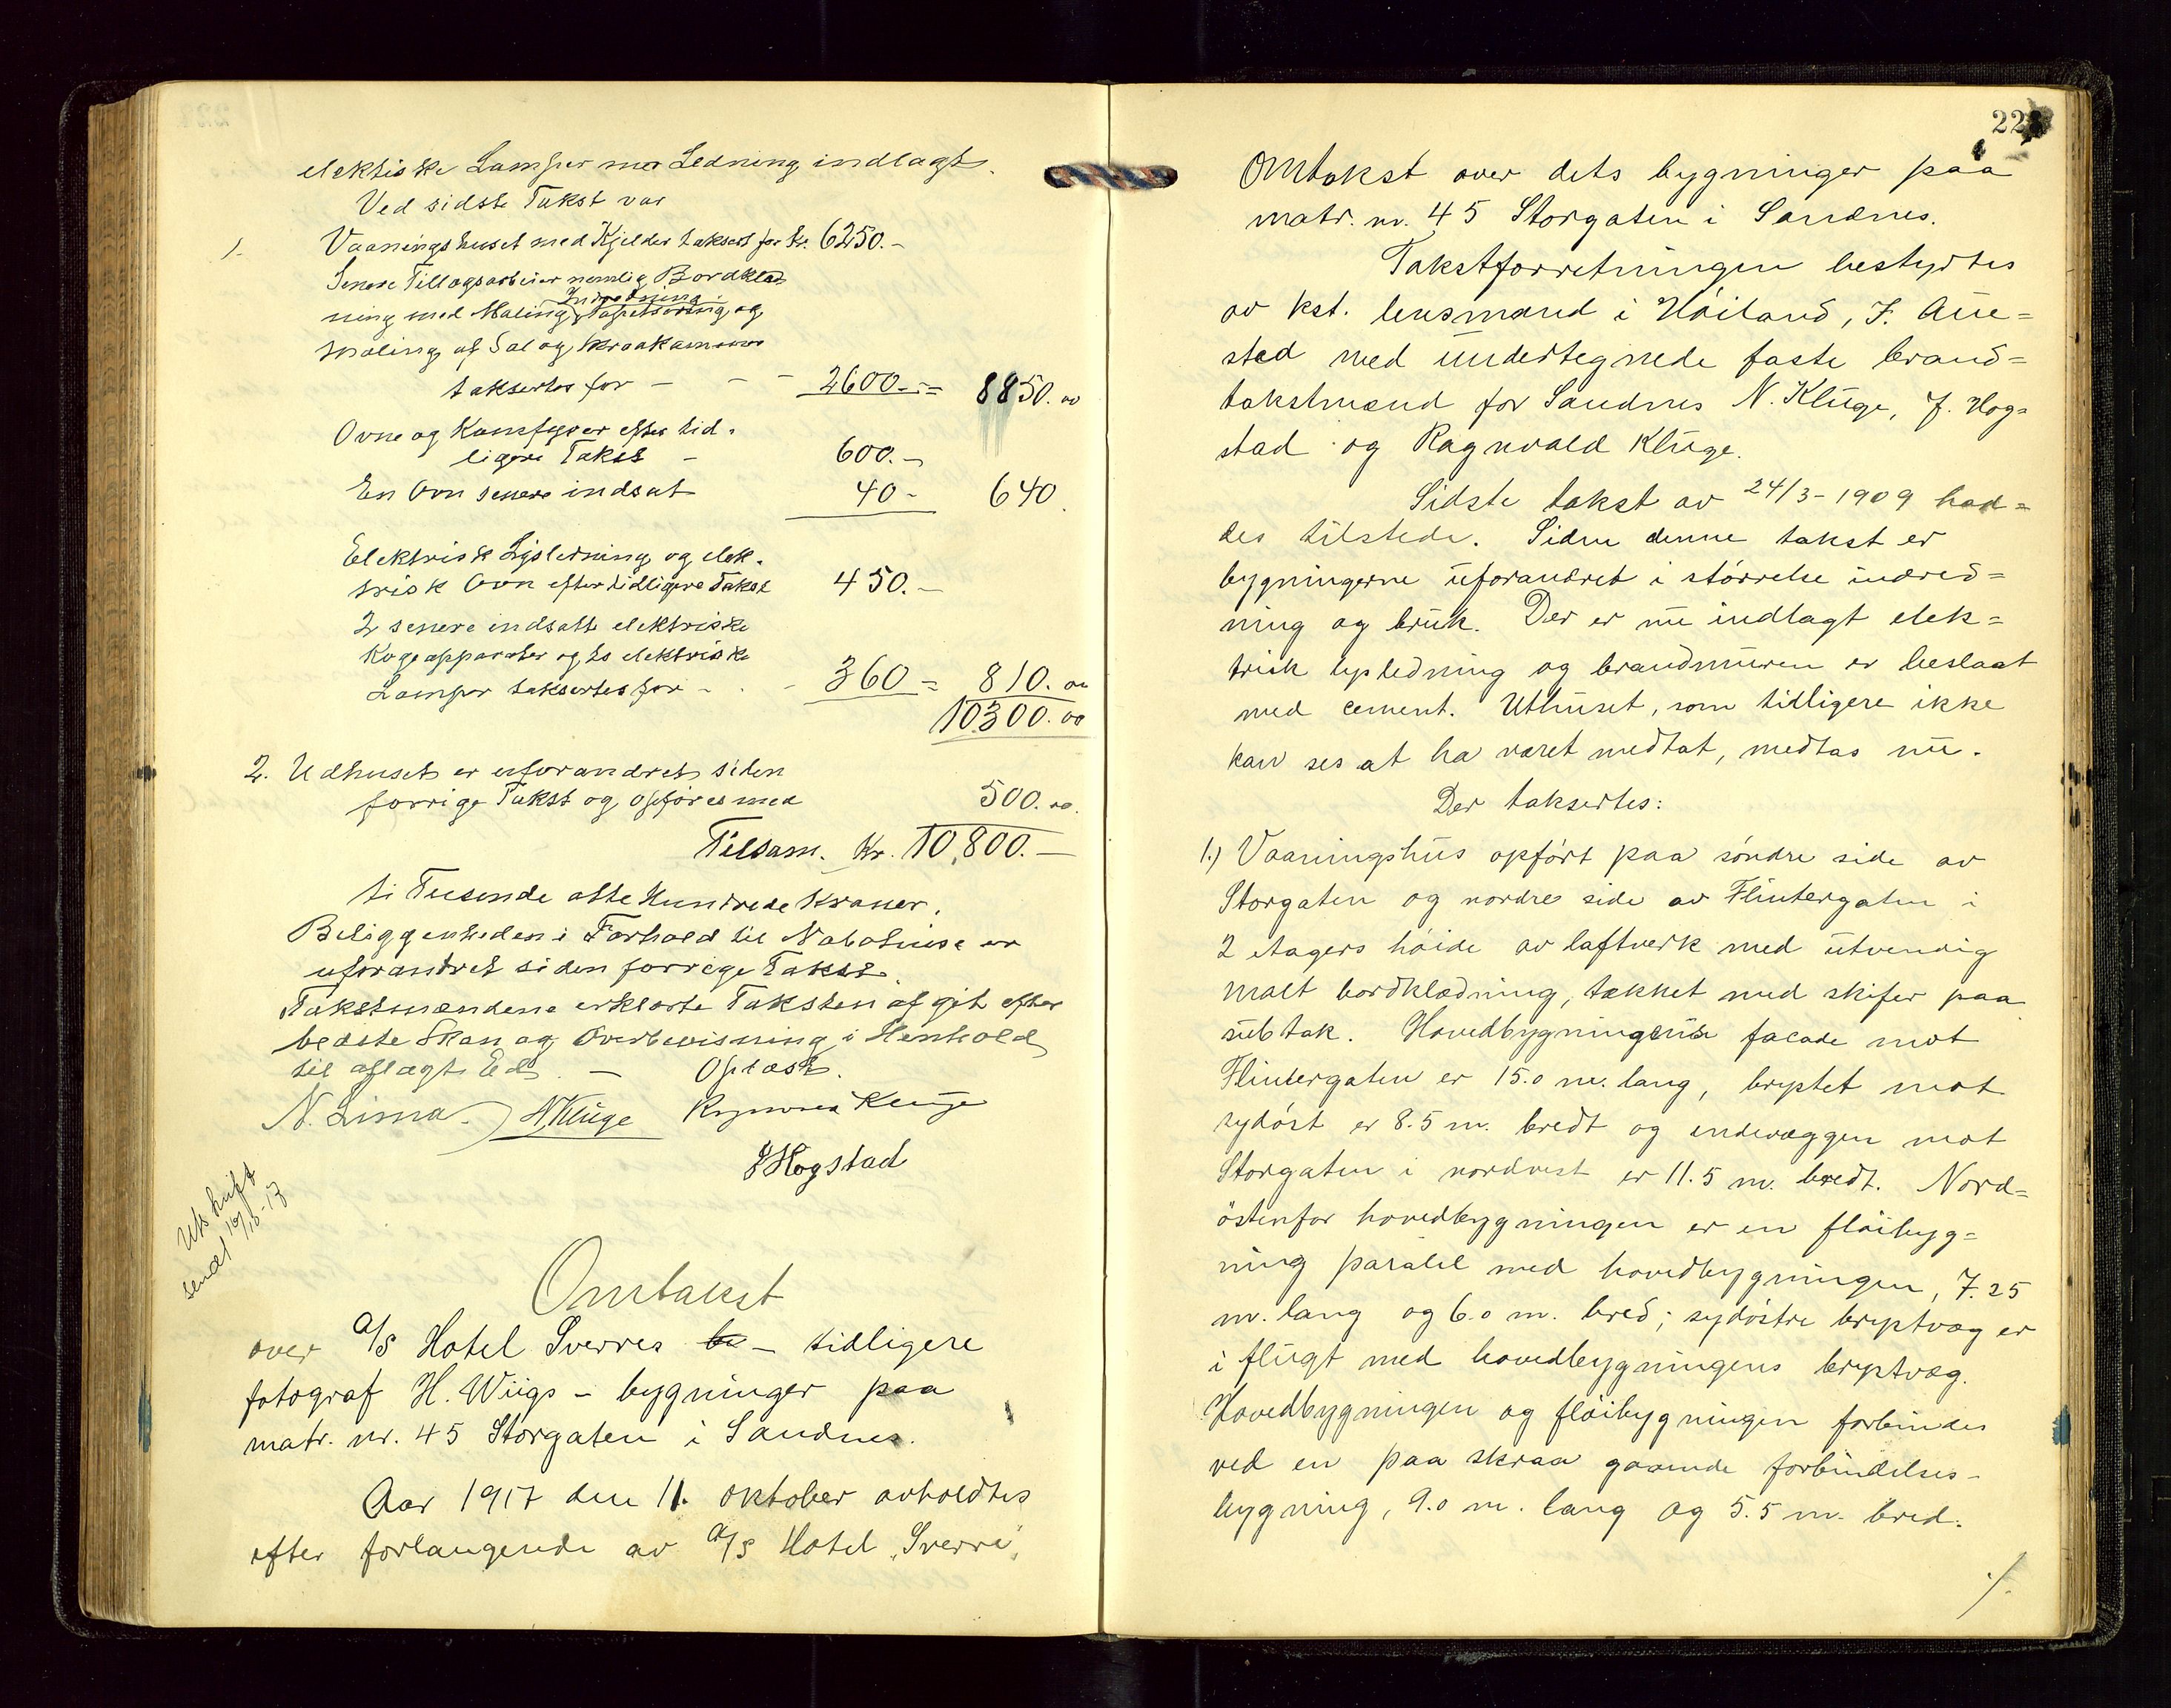 elektiske Lamper med Ledning indlagt.
Ved sidste Takst var
1. Vaaningshuset med Kjelder taksert for Kr. 6250.-
Senere Tillagsarbeier nemlig Bordklæd
Indredning
ning med Maling, Tapetsering og
Maling af Sal og Kraakammer
taksertes for - - - 2600.- = 8850.00
Ovne og Komfyrer efter tid-
ligere Takst - 600.-
En Ovn senere indsat 40.- 640.
Elektrisk Lysledning og elek-
trisk Ovn efter tidligere Takst 450.-
2 senere indsatte elektriske
Kogeapparater og to elektriske
Lamper taksertes for - - - 360 = 810.00
10300.00
2. Udhuset er uforandret siden
forrige Takst og opføres med 500.00.
Tilsam. Kr. 10,800.-
ti Tusende otte Hundrede Kroner.
Beliggenheden i Forhold til Nabohuse er
uforandret siden forrige Takst.
Takstmændene erklærte Taksten afgit efter
bedste Skøn og Overbevisning i Henhold
til aflagt Ed. - Oplæst.
N. Lima. N. Kluge Ragnvald Kluge
J Hogstad
Utskrift
sendt 19/10-17
Omtakst
over A/S Hotel Sverres be - tidligere
fotograf H. Wiigs - bygninger paa
matr. nr. 45 Storgaten i Sandnes.
Aar 1917 den 11. oktober avholdtes
efter forlangende av A/S Hotel „Sverre"
223
Omtakst over dets bygninger paa
matr. nr. 45 Storgaten i Sandnes.
Takstforretningen bestyrtes
av kst. lensmand i Høiland, J. Aue=
stad med undertegnede faste brand=
takstmænd for Sandnes N. Kluge, J. Hog=
stad og Ragnvald Kluge.
Sidste takst av 24/3-1909 had=
des tilstede. Siden denne takst er
bygningerne uforandret i størrelse indred=
ning og bruk. Der er nu indlagt elek=
trisk lysledning og brandmuren er beslaat
med cement. Uthuset, som tidligere ikke
kan ses at ha været medtat, medtas nu.
Der taksertes:
1.) Vaaningshus opført paa søndre side av
Storgaten og nordre side av Flintergaten i
2 etagers høide av laftverk med utvendig
malt bordklædning, tækket med skifer paa
subtak. Hovedbygningens facade mot
Flintergaten er 15.0 m. lang, bryptet mot
sydøst er 8.5 m. bredt og endevæggen mot
Storgaten i nordvest er 11.5 m. bredt. Nord=
østenfor hovedbygningen er en fløibyg=
ning paralel med hovedbygningen, 7.25
m. lang og 6.0 m. bred; sydøstre bryptvæg er
i flugt med hovedbygningens bryptvæg.
Hovedbygningen og fløibygningen forbindes
ved en paa skraa gaaende forbindelses-
bygning, 9.0 m. lang og 5.5 m. bred.
./.